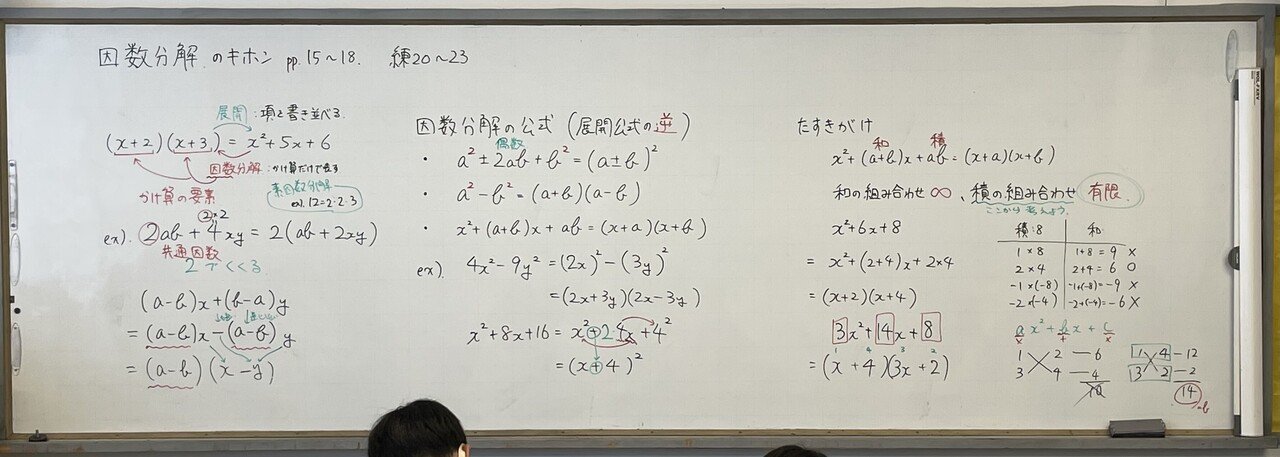 因数分解のキホン pp.15~18. 練20~23
展開:項を書き並べる
(x+2)(x+3) = x²+5x+6
因数分解:かけ算だけで表す
かけ算の要素
素因数分解
ex). 12=2·2·3
2×2
ex). 2ab+4xy=2(ab+2xy)
共通因数
2でくくる
(a-b)x+(b-a)y
=(a-b)x-(a-b)y
=(a-b)(x-y)
因数分解の公式(展開公式の逆)
偶数
・ a²±2ab+b²=(a±b)²
・ a²-b²=(a+b)(a-b)
・ x²+(a+b)x+ab=(x+a)(x+b)
ex). 4x²-9y²=(2x)²-(3y)²
=(2x+3y)(2x-3y)
x²+8x+16=x²+2·4x+4²
=(x+4)²
たすきがけ
和 積
x²+(a+b)x+ab=(x+a)(x+b)
和の組み合わせ∞、積の組み合わせ 有限.
ここから考えよう.
x²+6x+8
=x²+(2+4)x+2×4
=(x+2)(x+4)
積:8 和
1×8 1+8=9 ×
2×4 2+4=6 ○
-1×(-8) -1+(-8)=-9 ×
-2×(-4) -2+(-4)=-6 ×
3x²+14x+8
1 4 3 2
=(x+4)(3x+2)
ax²+bx+c
1 2 — 6
3 4 — 4
10
1 4 — 12
3 2 — 2
14